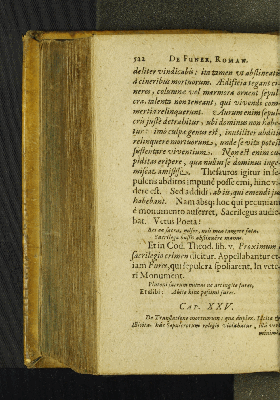 522 DE FUNER. ROMAN.
deliter vindicabis: ita tamen ut abstineatur
à cineribus mortuorum. Ædificia tegant ci-
neres, columnæ vel marmora ornent sepul-
cra, talenta non teneant, qui vivendi com-
mertia relinquerunt. Aurum enim sepul-
cris justè detrahitur, ubi dominus non habe-
tur: imò culpæ genus est, inutiliter abditis
relinquere mortuorum, unde se vita potest
sustentare viventium. Non est enim cu-
piditas eripere, quæ nullus se dominus inge-
miscat amisisse. Thesauros igitur in se-
pulcris abditos impunè posse erui, hinc vi-
dere est. Sed addidi, abiis, qui eruendi jus
habebant. Nam absque hoc qui pecuniam
è monumento auferret, Sacrilegus audie-
bat. Vetus Poeta:
Res ea sacra, miser, noli mea tangere fata:
Sacrilegæ bustis abstinuere manus.
Et in Cod. Theod. lib. v. Proximum
sacrilegio crimen dicitur. Appellabantur et-
iam Fures, qui sepulcra spoliarent. In vete-
ri Monument.
Et alibi: Abite hinc pessimi fures.
CAP. XXV.
De Translatione mortuorum: quæ duplex.